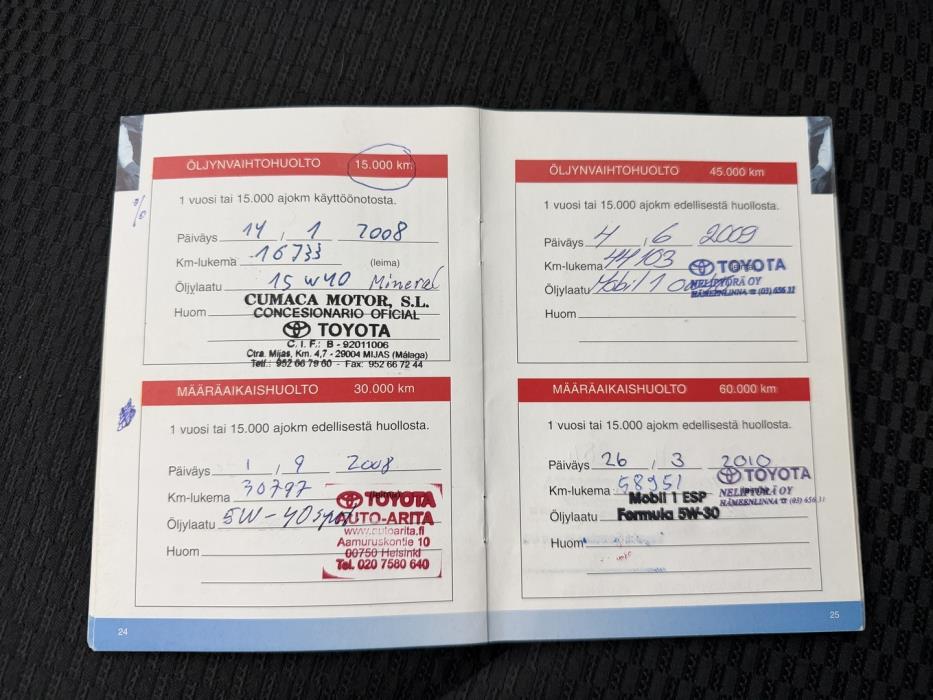 ÖLJYNVAIHTOHUOLTO 15.000 km
1 vuosi tai 15.000 ajokm käyttöönotosta.
Päiväys 14 / 1 2008
Km-lukema 16733 (leima)
Öljylaatu 15w40 Mineral
Huom
CUMACA MOTOR, S.L.
CONCESIONARIO OFICIAL
TOYOTA
C. I. F.: B - 92011006
Ctra. Mijas, Km. 4,7 - 29004 MIJAS (Málaga)
Telf.: 952 66 79 60 - Fax: 952 66 72 44
MÄÄRÄAIKAISHUOLTO 30.000 km
1 vuosi tai 15.000 ajokm edellisestä huollosta.
Päiväys 1 / 9 2008
Km-lukema 30797
Öljylaatu 5W-40
Huom
TOYOTA
AUTO-ARITA
www.autoarita.fi
Aamuruskontie 10
00750 Helsinki
Tel. 020 7580 640
24
ÖLJYNVAIHTOHUOLTO 45.000 km
1 vuosi tai 15.000 ajokm edellisestä huollosta.
Päiväys 4 / 6 2009
Km-lukema 44103
Öljylaatu Mobil 1
Huom
TOYOTA
NELIPYÖRÄ OY
HÄMEENLINNA (03) 656 31
MÄÄRÄAIKAISHUOLTO 60.000 km
1 vuosi tai 15.000 ajokm edellisestä huollosta.
Päiväys 26 / 3 2010
Km-lukema 58951
Öljylaatu Mobil 1 ESP
Formula 5W-30
Huom
TOYOTA
NELIPYÖRÄ OY
HÄMEENLINNA (03) 656 31
25